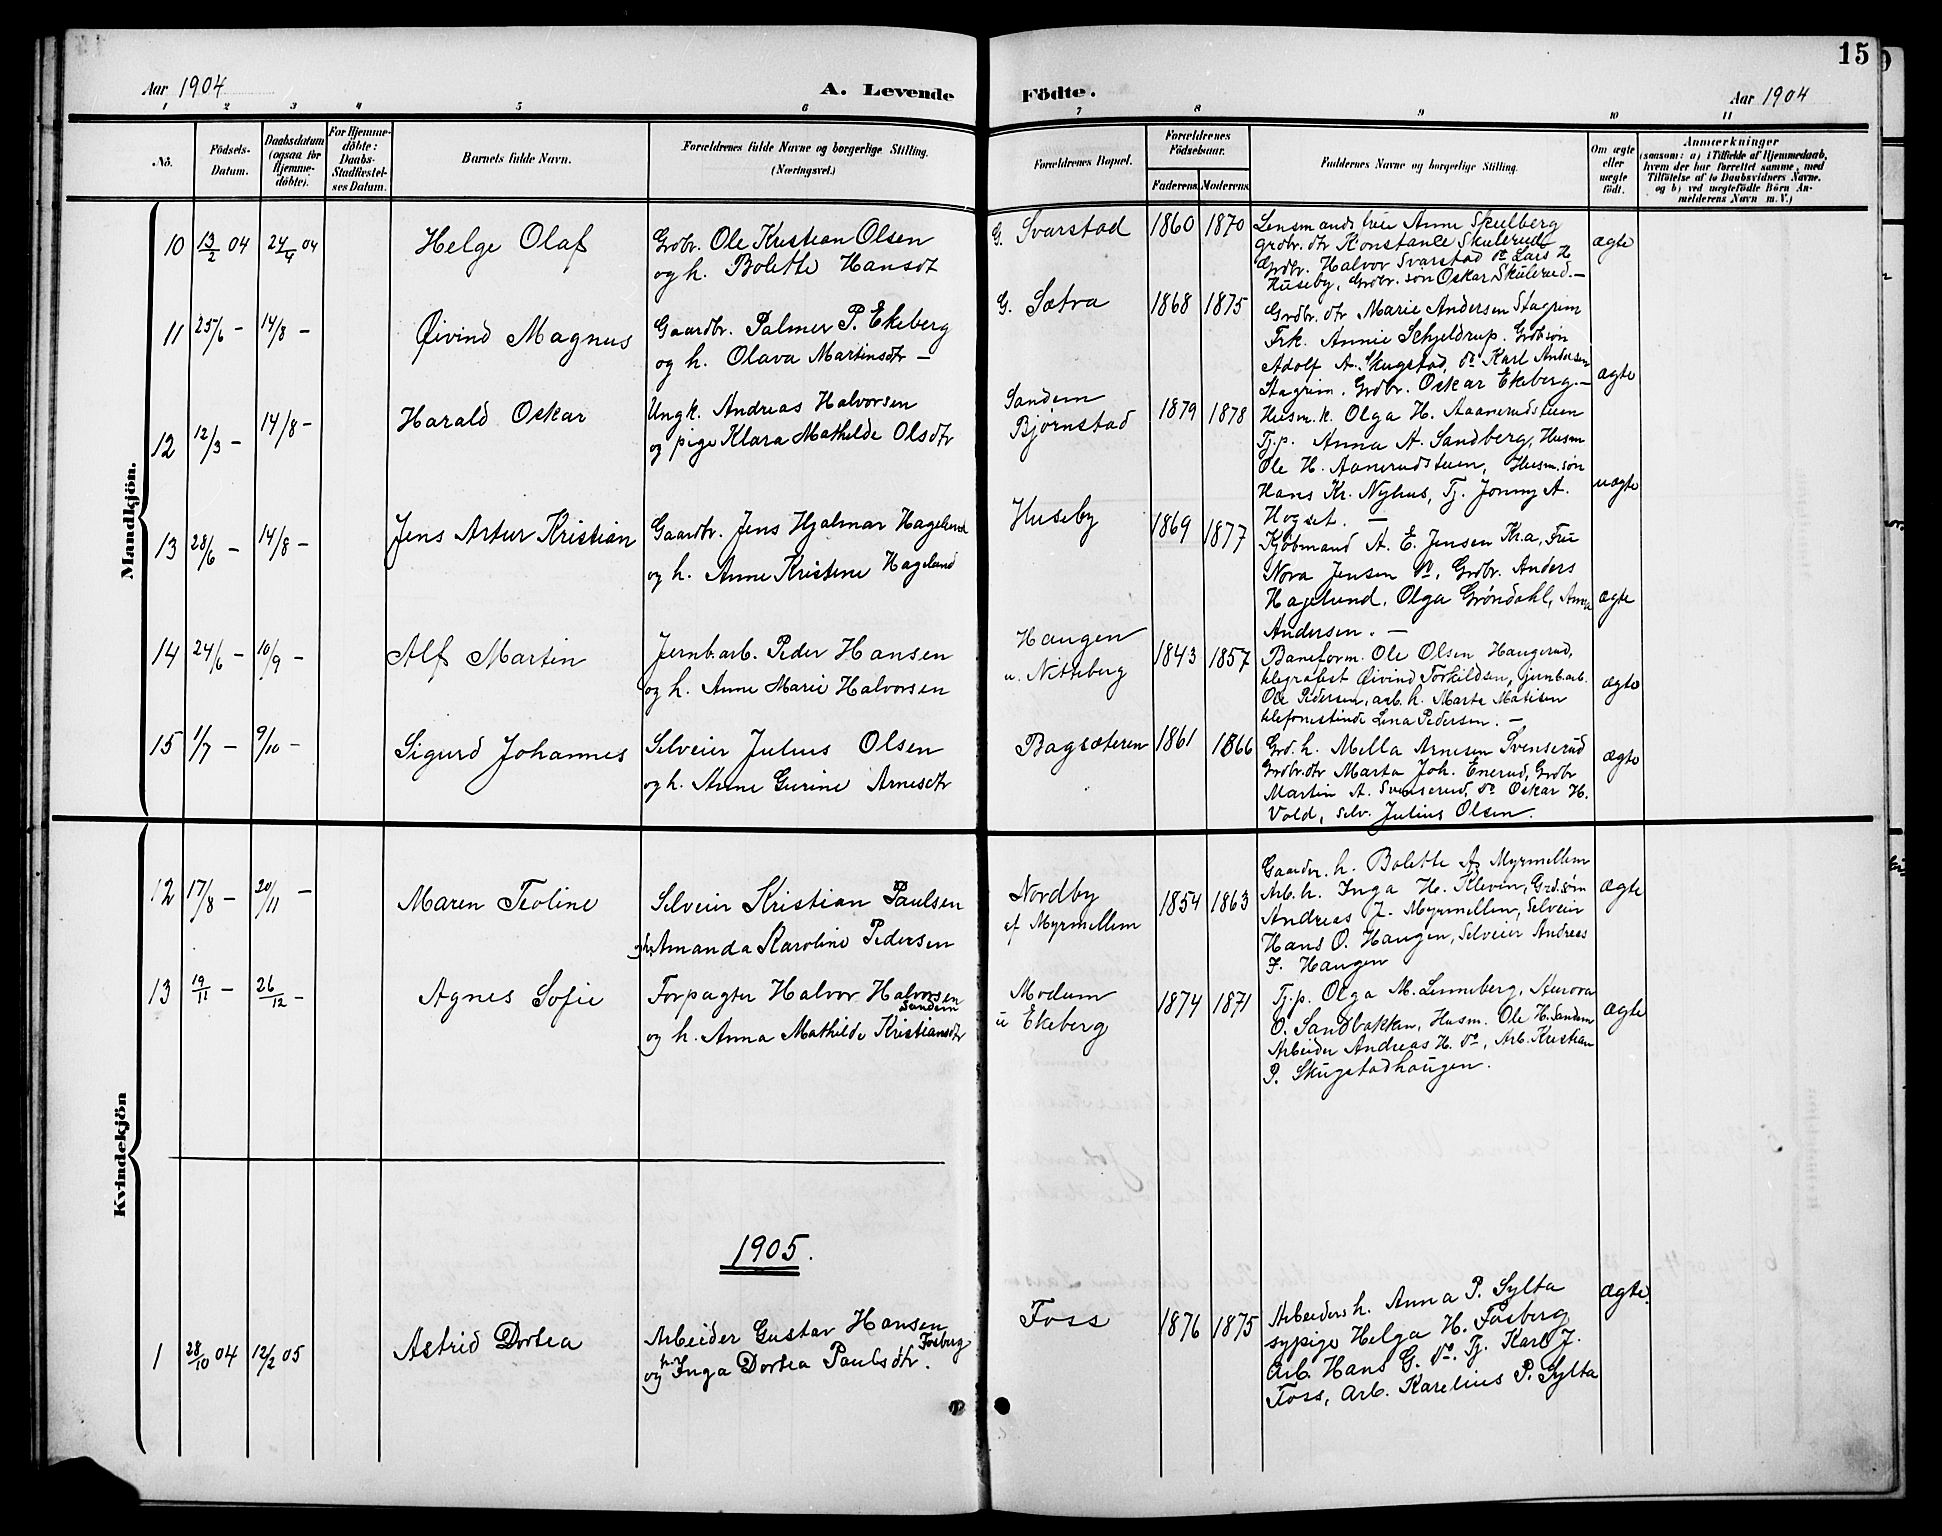 15
Aar 1904
A. Levende
Födte.
Aar 1904
1 2 3 4 5 6 7 8 9 10 11
No.
Födsels-
Datum.
Daabsdatum
(ogsaa for
Hjemme-
döbte).
For Hjemme-
döbte:
Daabs-
Stadfæstel-
ses Datum.
Barnets fulde Navn.
Forældrenes fulde Navne og borgerlige Stilling.
(Næringsvei.)
Forældrenes Bopæl.
Forældrenes
Födselsaar.
Faderens. Moderens.
Faddernes Navne og borgerlige Stilling.
Om ægte
eller
uægte
födt.
Anmærkninger
(saasom: a) i Tilfælde af Hjemmedaab,
hvem der har forrettet samme, med
Tilföielse af to Daabsvidners Navne.
og b) ved uægtefödte Börn An-
melderens Navn m. V.)
Mandkjön.
10 13/2 04 24/4 04 Helge Olaf
Grdbr. Ole Kristian Olsen
og h. Bolette Hansdt
G. Svarstad 1860 1870
Lensmands frue Anne Skulberg
grdbr. dtr Konstanse Skulerud
Grdbr. Halvor Svarstad do Lars H
Huseby, Grdbr. søn Oskar Skulerud. —
ægte
11 25/6 — 14/8 — Øivind Magnus
Gaardbr. Palmer P. Ekeberg
og h. Olava Martinsdtr —
G. Sætra 1868 1875
Grdbr. dtr Marie Andersen Stagrim
Frk. Annie Schjeldrup. Grdb.søn
Adolf A. Skugstad, do Karl Andersen
Stagrim. Grdbr. Oskar Ekeberg. —
ægte
12 12/3 — 14/8 — Harald Oskar
Ungk. Andreas Halvorsen
og pige Klara Mathilde Olsdtr
Sandem
Bjørnstad 1879 1878
Husm. k. Olga H. Aanerudsteen
Tj.p. Anna A. Sandberg, Husm
Ole H. Aanerudsteen, Husm. søn
Hans Kr. Nyhus, Tj. Jonny A.
Hogset. —
uægte
13 28/6 — 14/8 — Jens Artur Kristian
Gaardbr. Jens Hjalmar Hagelund
og h. Anne Kristine Hagelund
Huseby 1869 1877
Kjøbmand A. E. Jensen Kra, Frue
Nora Jensen do, Grdbr. Anders
Hagelund, Olga Grøndahl, Anna
Andersen. —
ægte
14 24/6 — 10/9 — Alf Martin
Jernb.arb. Peder Hansen
og h. Anne Marie Halvorsen
Haugen
u. Nitteberg 1843 1857
Baneform. Ole Olsen Haugerud,
telegrafist Øivind Torkildsen, jernb.arb.
Ole Pedersen, arb. h. Marte Matisen
telefonistinde Lena Pedersen. —
ægte
15 1/7 — 9/10 — Sigurd Johannes
Selveier Julius Olsen
og h. Anne Gurine Arnesdtr
Bagsæteren 1861 1866
Grd. h. Mella Arnesen Svenserud
Grdbr.dtr Marta Joh. Enerud, Grdbr
Martin A. Svenserud, do Oskar H.
Vold, selv. Julius Olsen.
ægte
Kvindekjön
12 17/8 — 20/11 — Maren Teoline
Selveier Kristian Paulsen
og h. Amanda Karoline Pedersen
Nordby
af Myrmellem 1854 1863
Gaarder. h. Bolette A. Myrmellem
Arb. h. Inga H. Kleven, Grd.søn
Andreas J. Myrmellem, Selveier
Hans O. Haugen, Selveier Andreas
J. Haugen
ægte
13 19/11 — 26/12 — Agnes Sofie
Forpagter Halvor Halvorsen
Sandem
og h. Anna Mathilde Kristiansdtr
Modum
u Ekeberg 1874 1871
Tj.p. Olga M. Linneberg, Aurora
O. Sandbakken, Husm. Ole H. Sandem
Arbeider Andreas H. do, Arb. Kristian
P. Skugstadhaugen.
ægte
1905.
1 28/10 04 12/2 05 Astrid Dortea
Arbeider Gustav Hansen
Fosberg
og h Inga Dortea Paulsdtr.
Foss 1876 1875
Arbeiders h. Anna P. Sylta
sypige Helga H. Fosberg
arb. Hans G. do. Tj. Karl J.
Foss, arb. Karelius P. Sylta
ægte.